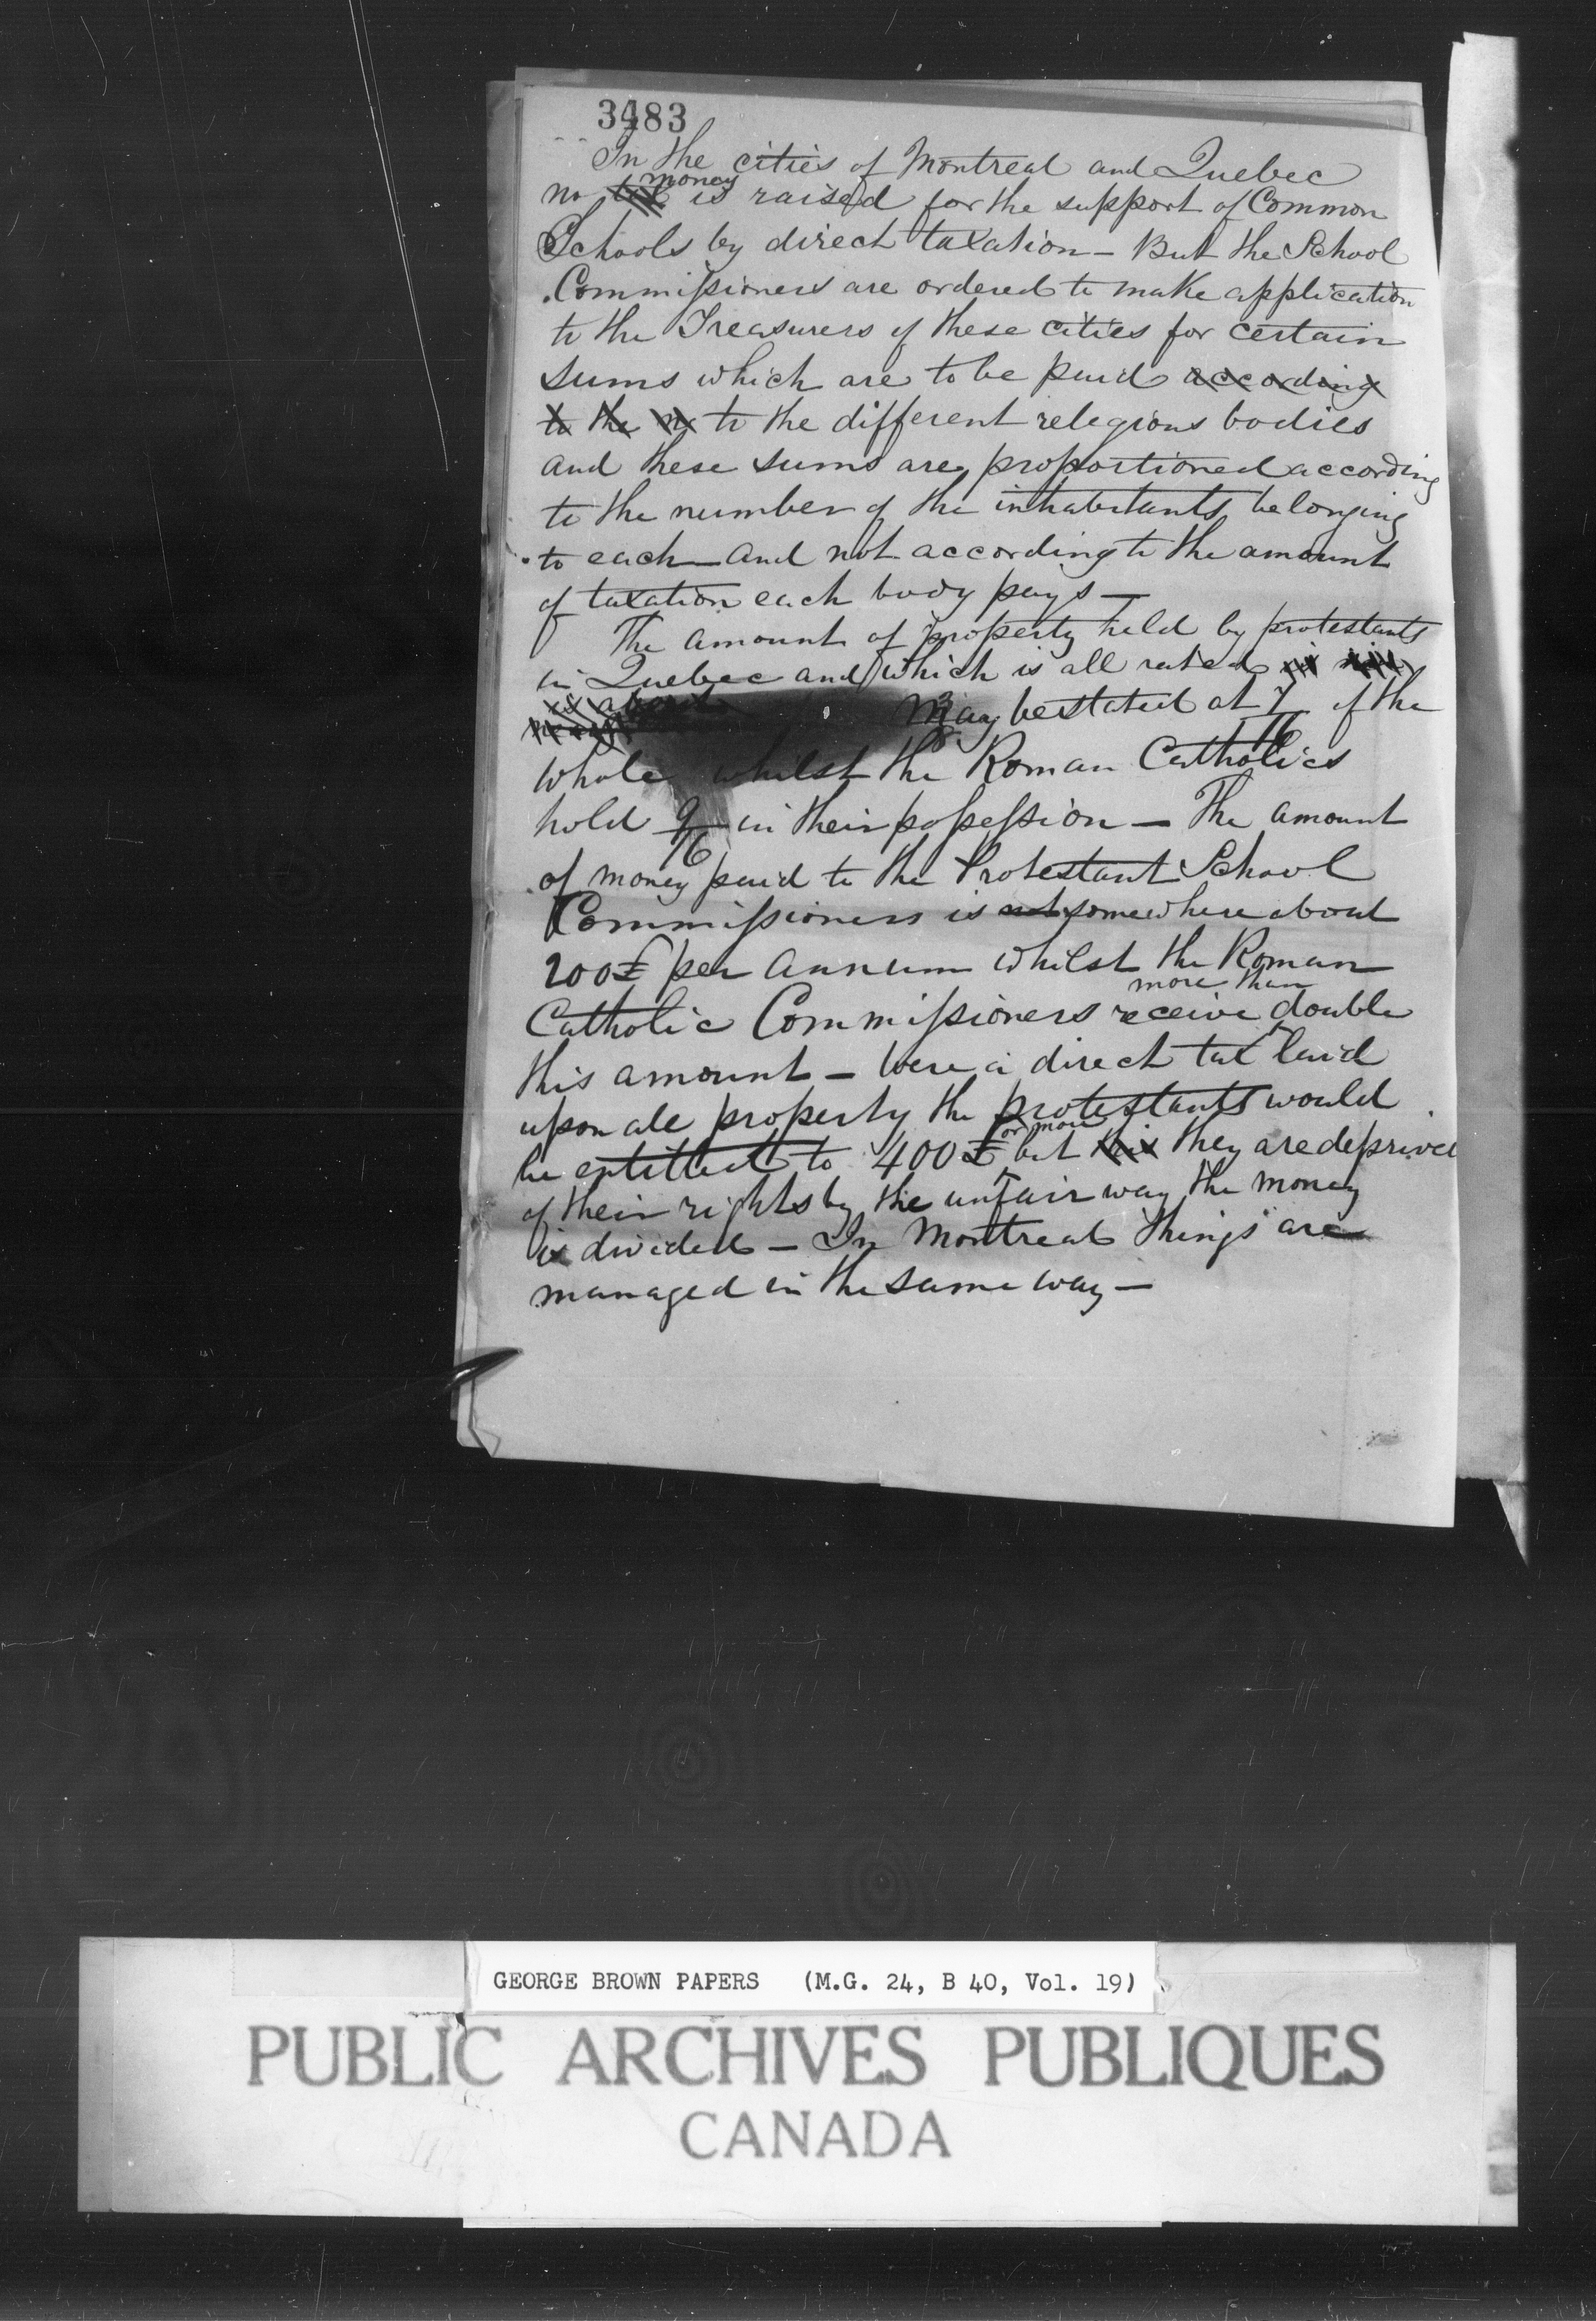 3483
In the cities of Montreal and Quebec
no tax money is raised for the support of Common
Schools by direct taxation – But the School
Commissioners are ordered to make application
to the Treasurers of these cities for certain
sums which are to be paid according
to the to the different relegious bodies
and these sums are proportioned according
to the number of the inhabitants belonging
to each – and not according to the amount
of taxation each body pays –
The amount of property held by protestants
in Quebec and which is all rated
is about may be stated at 7/16 of the
whole whilst the Roman Catholics
hold 9/16 in their possession – The amount
of money paid to the Protestant School
Commissioners is not somewhere about
200£ per annum whilst the Roman
Catholic Commissioners receive more than double
this amount – were a direct tax laid
upon all property the protestants would
be entitled to 400£ or more but this they are deprived
of their rights by the unfair way the money
is divided – In Montreal things are
managed in the same way –
GEORGE BROWN PAPERS (M.G. 24, B 40, Vol. 19)
PUBLIC ARCHIVES PUBLIQUES
CANADA